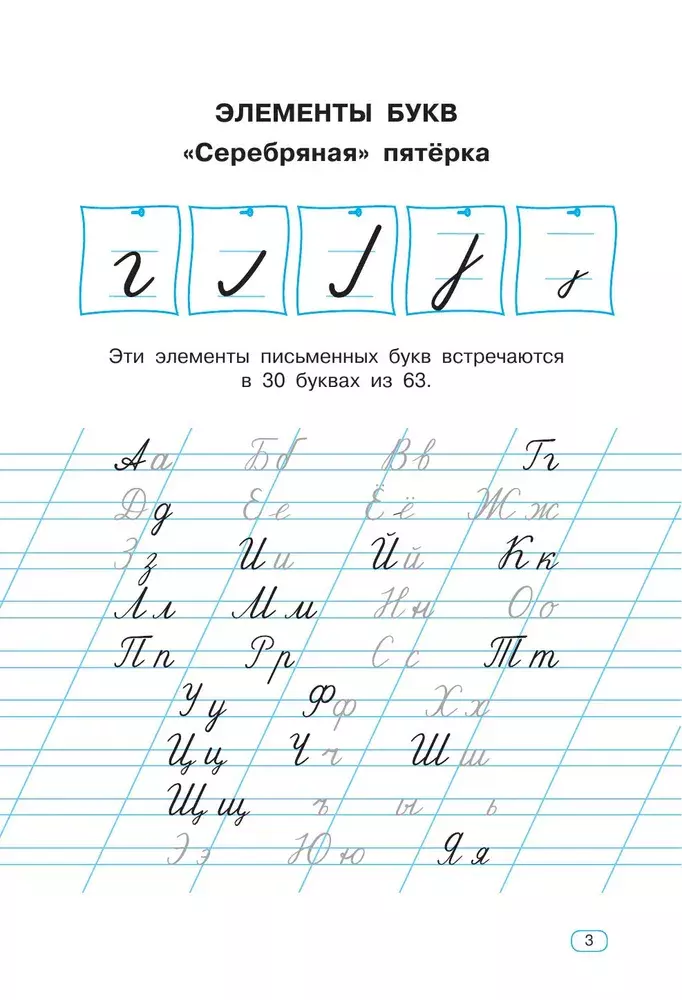 ЭЛЕМЕНТЫ БУКВ
«Серебряная» пятёрка
Эти элементы письменных букв встречаются
в 30 буквах из 63.
Аа Бб Вв Гг
Дд Ее Ёё Жж
Зз Ии Йй Кк
Лл Мм Нн Оо
Пп Рр Сс Тт
Уу Фф Хх
Цц Чч Шш
Щщ ъ ы ь
Ээ Юю Яя
3